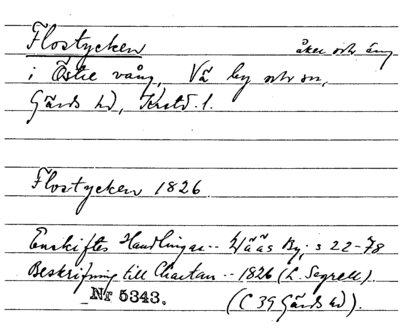 Flostycken åker och äng
i Östre vång, Vä by och sn,
Gärds hd, Krstd. l.
Flostycken 1826
Enskiftes Handlingar.. Wääs By, s 22-78
Beskrifning till Chartan.. 1826 (L. Segrell).
Nr 5343. (C 39 Gärds hd).